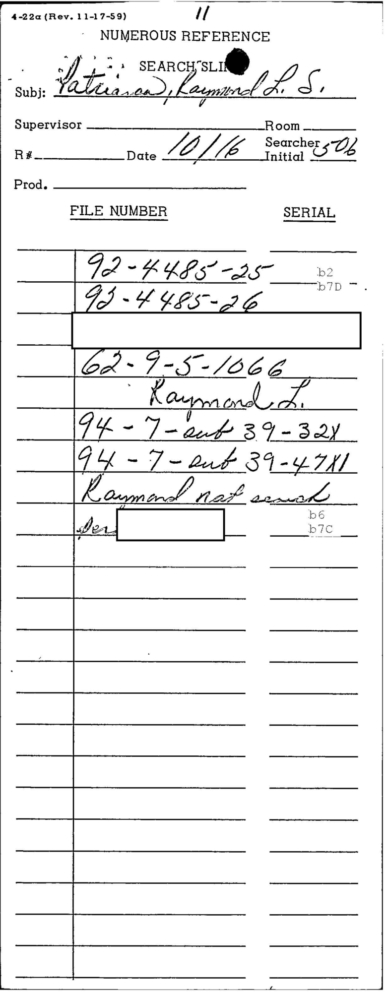 4-22a (Rev. 11-17-59)
11
NUMEROUS REFERENCE
SEARCH SLIP
Subj: Patriarca, Raymond L. S.
Supervisor Room
R# Date 10/16 Searcher Initial 506
Prod.
FILE NUMBER SERIAL
92-4485-25 b2
b7D
92-4485-26
62-9-5-1066
Raymond L.
94-7-sub 39-32X
94-7-sub 39-47X1
Raymond not
per b6
b7C